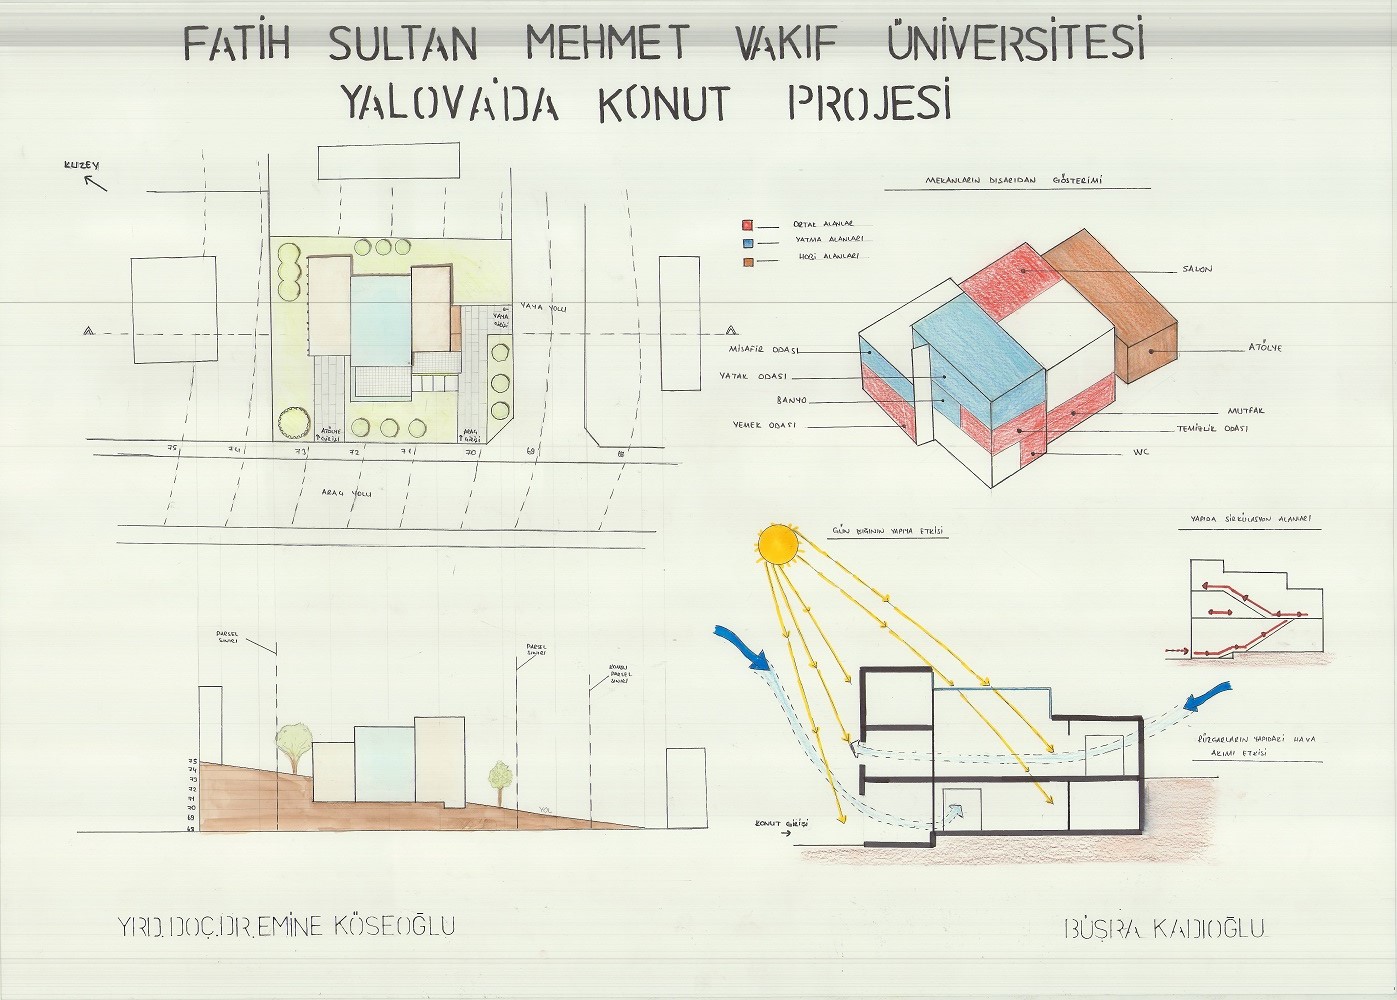 FATİH SULTAN MEHMET VAKIF ÜNİVERSİTESİ
YALOVA'DA KONUT PROJESİ
KUZEY
YAYA YOLU
YAYA
GİRİŞİ
A
A
ATÖLYE
GİRİŞİ
ARAÇ
GİRİŞİ
75
74
73
72
71
70
69
68
ARAÇ YOLU
MEKANLARIN DIŞARIDAN GÖSTERİMİ
ORTAK ALANLAR
YATMA ALANLARI
HOBİ ALANLARI
SALON
ATÖLYE
MİSAFİR ODASI
YATAK ODASI
BANYO
YEMEK ODASI
MUTFAK
TEMİZLİK ODASI
WC
GÜN IŞIĞININ YAPIYA ETKİSİ
YAPIDA SİRKÜLASYON ALANLARI
PARSEL
SINIRI
PARSEL
SINIRI
KOMŞU
PARSEL
SINIRI
75
74
73
72
71
70
69
68
YOL
KONUT GİRİŞİ
RÜZGARLARIN YAPIDAKİ HAVA
AKIMI ETKİSİ
YRD.DOÇ.DR.EMİNE KÖSEOĞLU
BÜŞRA KADIOĞLU